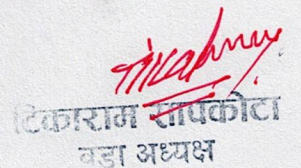 टिकाराम सापकोटा
वडा अध्यक्ष